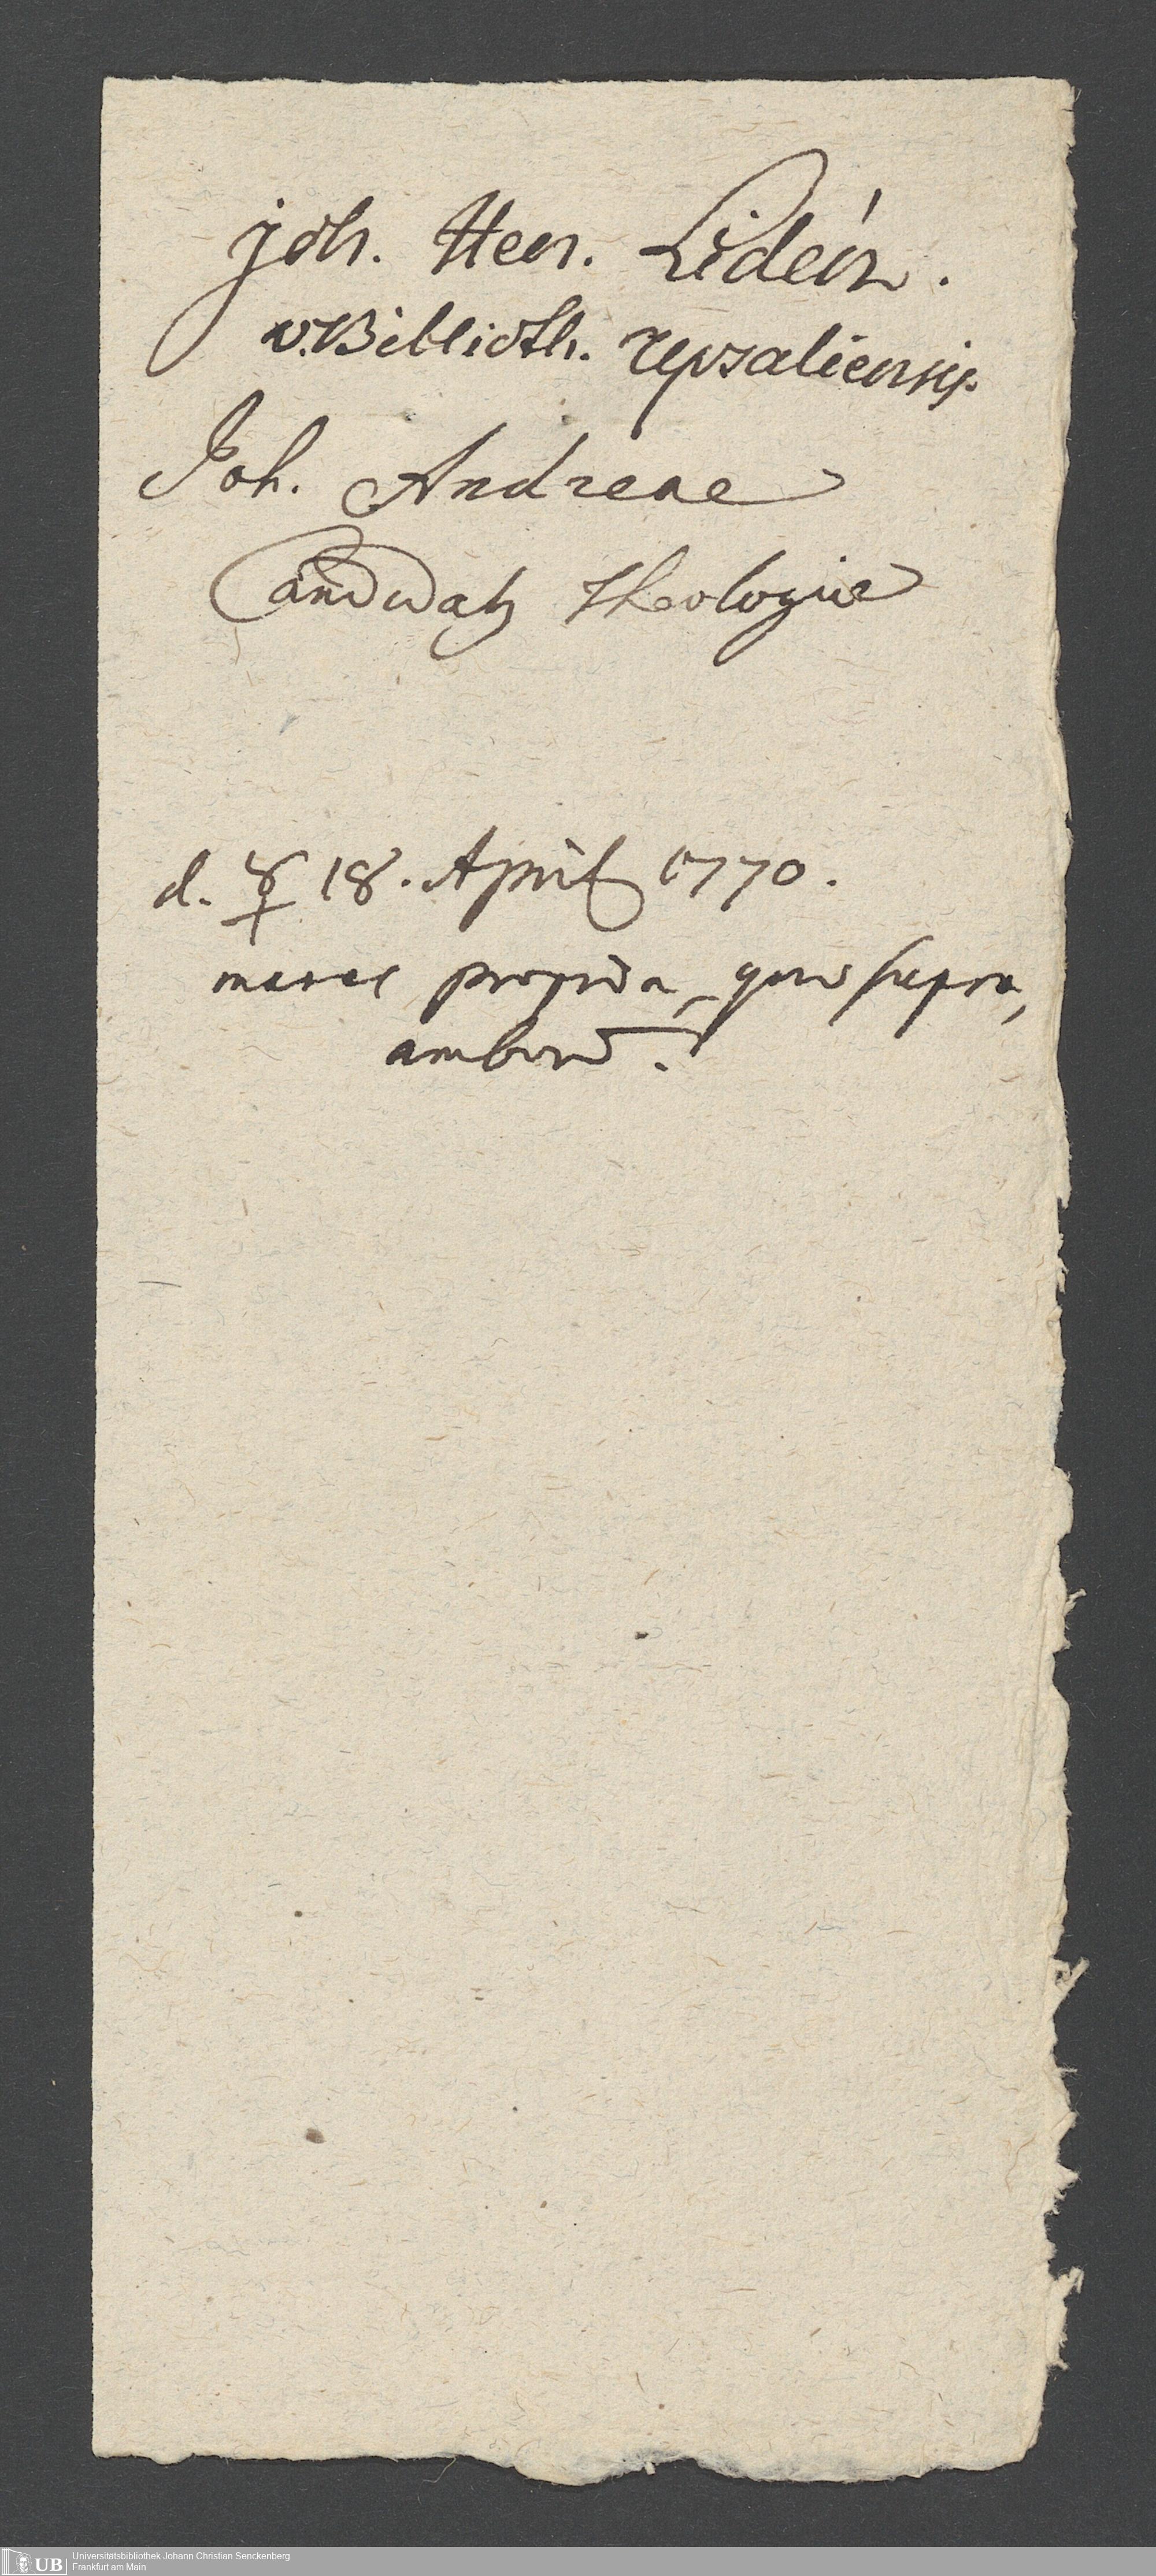 Joh. Hen. Lidén.
v. Biblioth. Upsaliensis.
Joh. Andreae
Candidatus Theologiae
d. ☿ 18. April 1770.
manu propria, quo supra,
ambo.
UB
Universitätsbibliothek Johann Christian Senckenberg
Frankfurt am Main